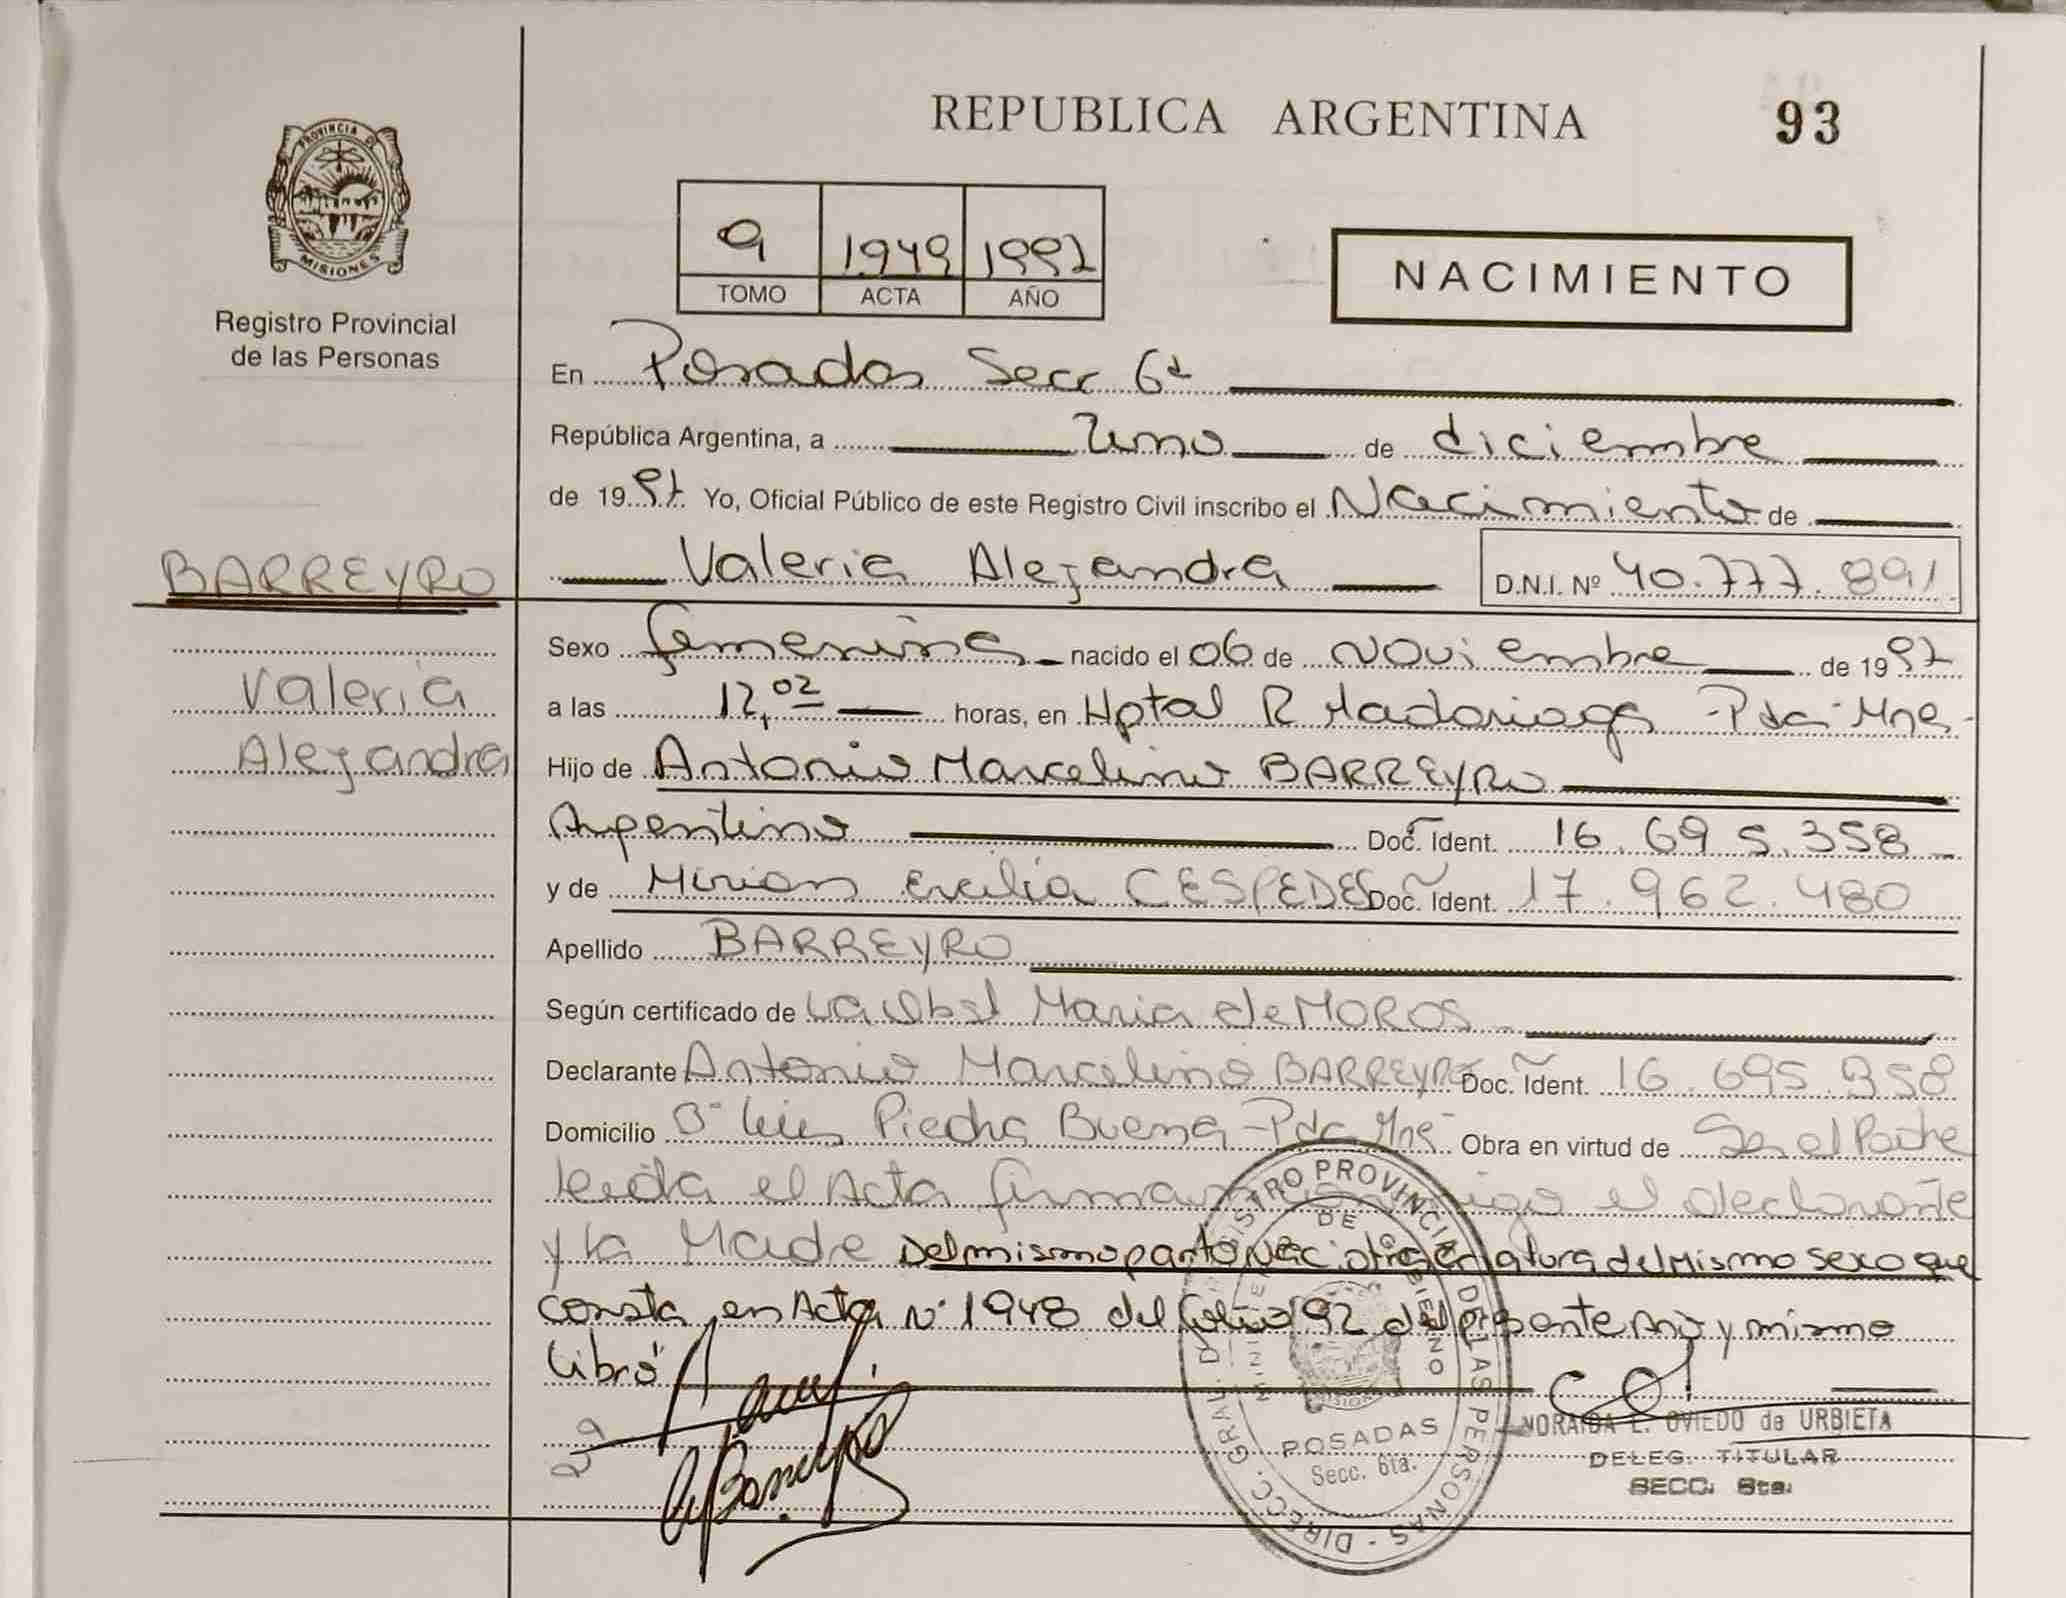 REPUBLICA ARGENTINA
93
PROVINCIA DE
MISIONES
Registro Provincial
de las Personas
9 1949 1997
TOMO ACTA AÑO
NACIMIENTO
En Posadas Secc 6ª
República Argentina, a Uno de diciembre
de 1997 Yo, Oficial Público de este Registro Civil inscribo el Nacimiento de
BARREYRO
Valeria Alejandra D.N.I. Nº 40.777.891
Valeria
Alejandra
Sexo femenino nacido el 06 de Noviembre de 1997
a las 12,02 horas, en Hptal R Madariaga - Pdas Mnes-
Hijo de Antonio Marcelino BARREYRO
Argentino Doc. Ident. 16.695.358
y de Mirian Ercilia CESPEDES Doc. Ident. 17.962.480
Apellido BARREYRO
Según certificado de La Obst Maria de MOROS
Declarante Antonio Marcelino BARREYRO Doc. Ident. 16.695.358
Domicilio Bº Luis Piedra Buena - Pdas Mnes Obra en virtud de Ser el Padre
Leida el Acta firman conmigo el declarante
y la Madre Del mismo parto Nacio otra criatura del Mismo sexo que
consta en Acta Nº 1948 del folio 92 del presente Año y mismo
Libro
NORAIDA E. OVIEDO de URBIETA
DELEG. TITULAR
SECC. 6ta.
DIRECC. GRAL. DEL REGISTRO PROVINCIAL DE LAS PERSONAS
MINISTERIO DE GOBIERNO
POSADAS
Secc. 6ta.